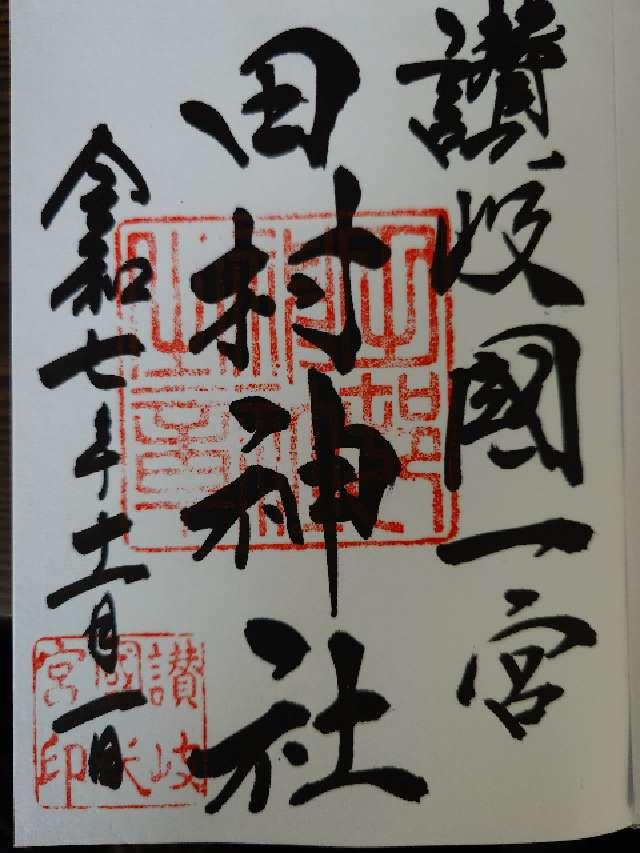 讃岐國一宮
田村神社
令和七年十一月一日
讃岐
國一
宮印